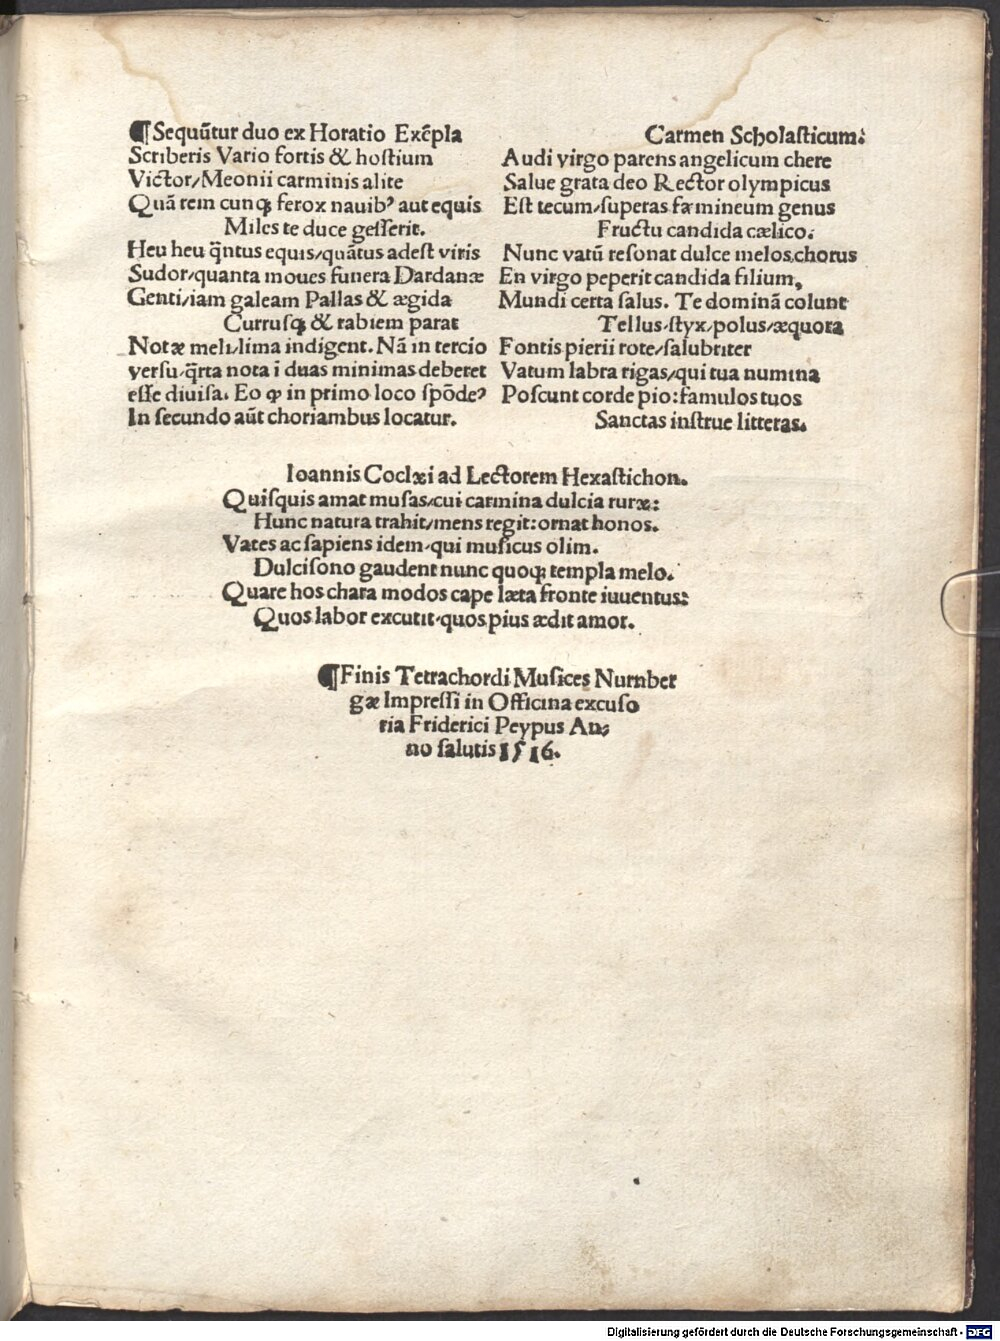 ¶Sequūtur duo ex Horatio Exēpla
Scriberis Vario fortis & hostium
Victor/Meonii carminis alite
Quā rem cunqꝫ ferox nauibꝰ aut equis
Miles te duce gesserit.
Heu heu q̄ntus equis/quātus adest viris
Sudor/quanta moues funera Dardanæ
Genti/iam galeam Pallas & ægida
Currusqꝫ & rabiem parat
Notæ meli/lima indigent. Nā in tercio
versu/q̄rta nota ī duas minimas deberet
esse diuisa. Eo ꝙ in primo loco spōdeꝰ
In secundo aūt choriambus locatur.
Carmen Scholasticum:
Audi virgo parens angelicum chere
Salue grata deo Rector olympicus
Est tecum/superas fæmineum genus
Fructu candida cælico.
Nunc vatū resonat dulce melos,chorus
En virgo peperit candida filium,
Mundi certa salus. Te dominā colunt
Tellus/styx/polus/æquora
Fontis pierii rore/salubriter
Vatum labra rigas/qui tua numina
Poscunt corde pio:famulos tuos
Sanctas instrue litteras.
Ioannis Coclæi ad Lectorem Hexastichon.
Quisquis amat musas/cui carmina dulcia ruræ:
Hunc natura trahit/mens regit:ornat honos.
Vates ac sapiens idem/qui musicus olim.
Dulcisono gaudent nunc quoqꝫ templa melo.
Quare hos chara modos cape læta fronte iuuentus:
Quos labor excutit/quos pius ædit amor.
¶Finis Tetrachordi Musices Nurnber
gæ Impressi in Officina excuso
ria Friderici Peypus An⸗
no salutis 1516.
Digitalisierung gefördert durch die Deutsche Forschungsgemeinschaft - DFG